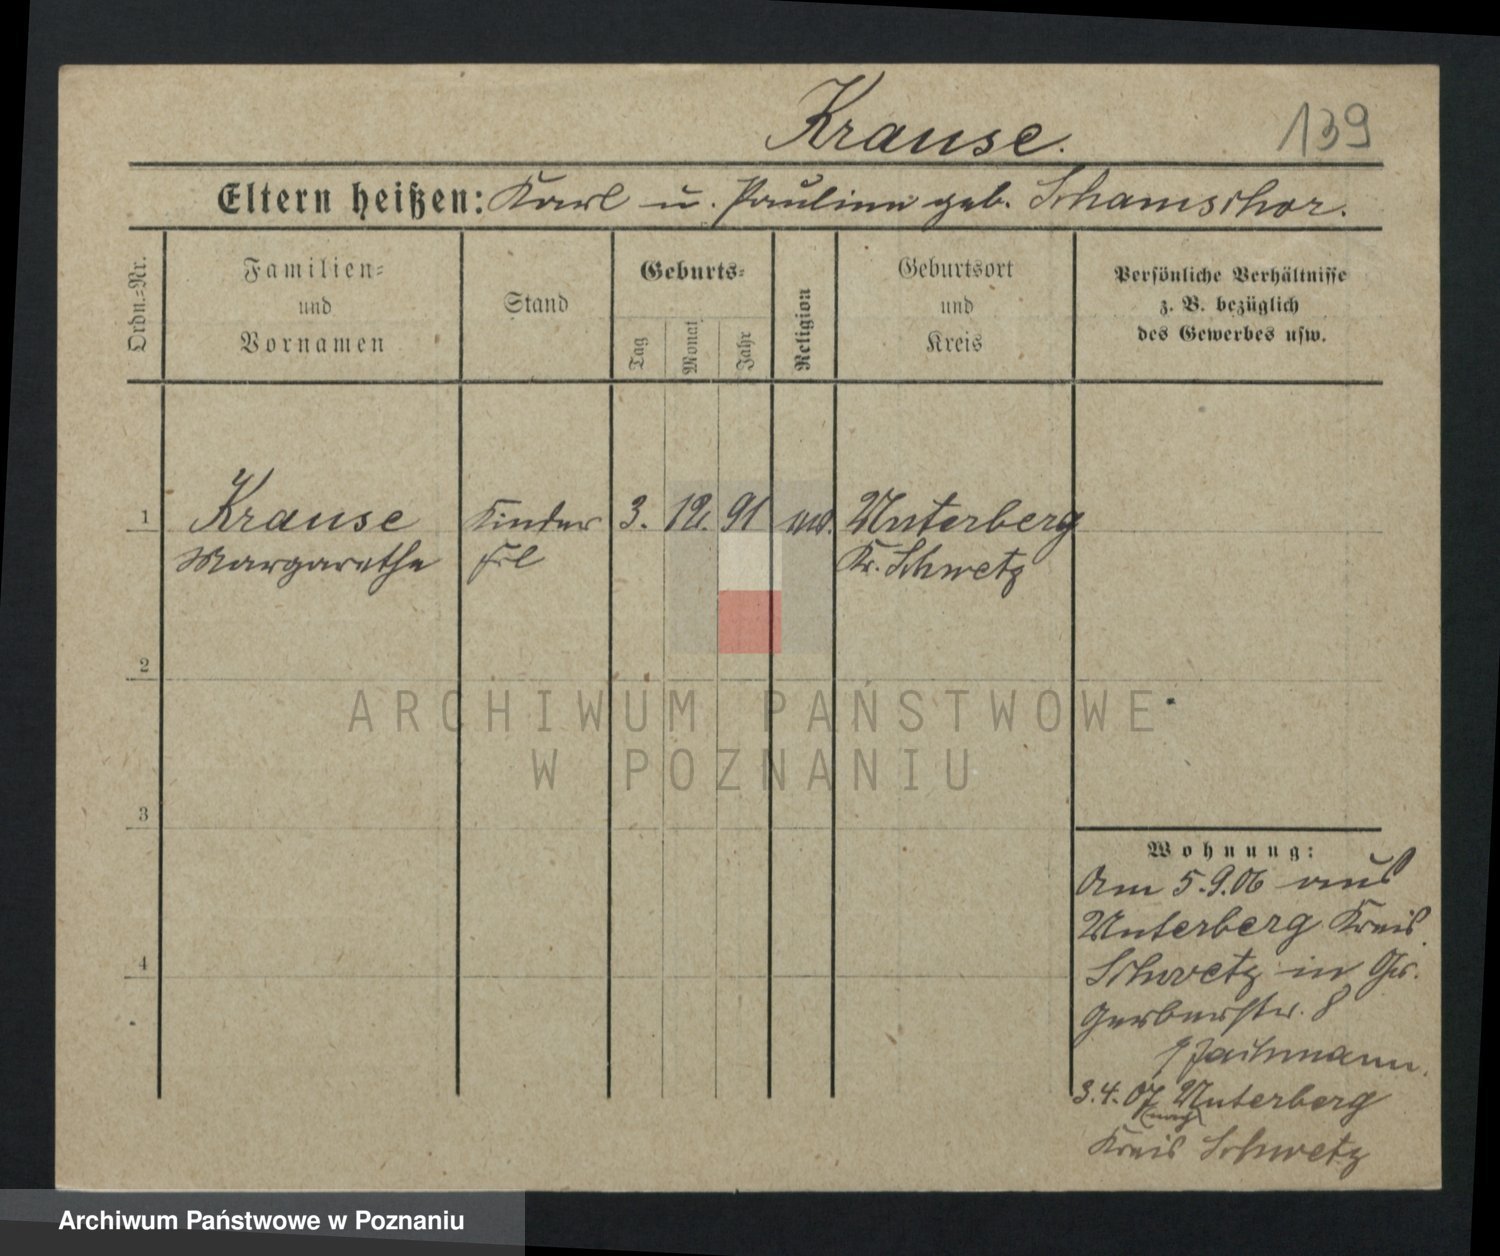 Krause.
139
Eltern heißen: Karl u. Pauline geb. Schamschor.
Ordn.-Nr.
Familien-
und
Vornamen
Stand
Geburts-
Tag
Monat
Jahr
Religion
Geburtsort
und
Kreis
Persönliche Verhältnisse
z. B. bezüglich
des Gewerbes usw.
1
Krause
Margarethe
Kinder
frl
3. 12. 91
ev.
Unterberg
Kr. Schwetz
2
3
4
ARCHIWUM PAŃSTWOWE
W POZNANIU
Wohnung:
Am 5.9.06 aus
Unterberg Kreis
Schwetz in
Gerberstr. 8
Jachmann.
3.4.07 Unterberg
Kreis Schwetz
Archiwum Państwowe w Poznaniu